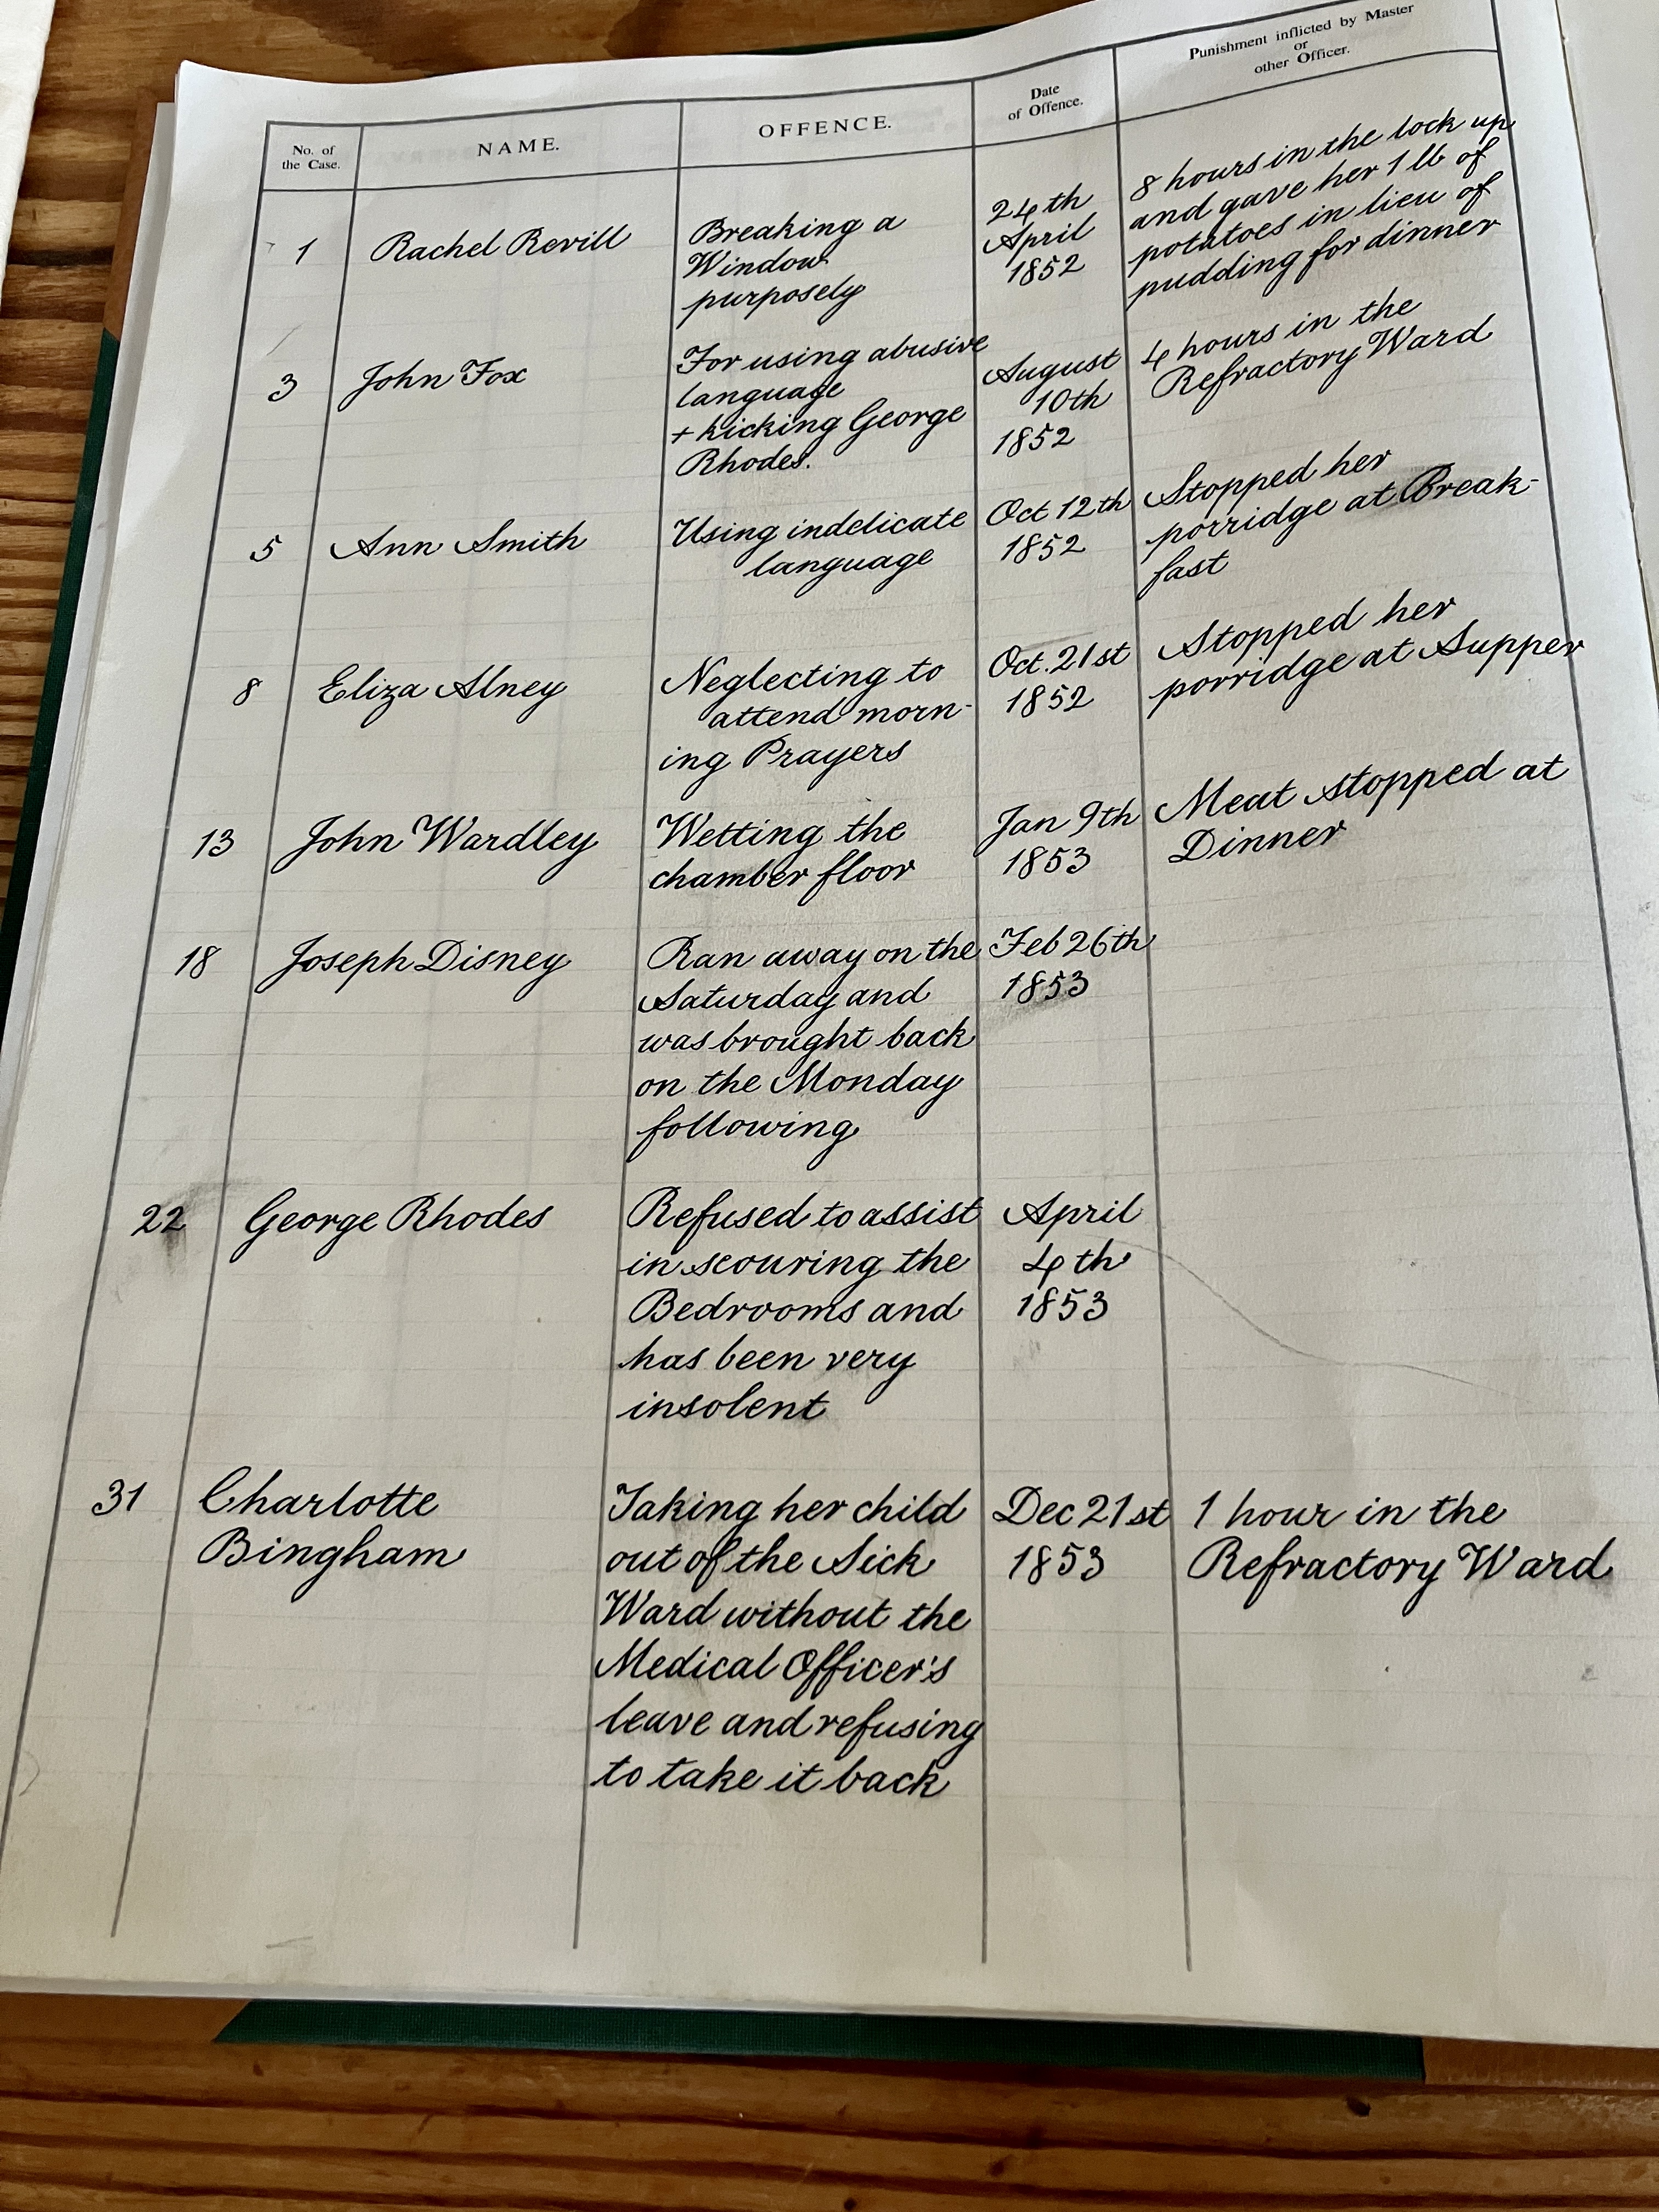 No. of
the Case.
NAME.
OFFENCE.
Date
of Offence.
Punishment inflicted by Master
or
other Officer.
1
Rachel Revill
Breaking a
Window
purposely
24th
April
1852
8 hours in the lock up
and gave her 1 lb of
potatoes in lieu of
pudding for dinner
3
John Fox
For using abusive
language
+ kicking George
Rhodes.
August
10th
1852
4 hours in the
Refractory Ward
5
Ann Smith
Using indelicate
language
Oct 12th
1852
Stopped her
porridge at Break-
fast
8
Eliza Alney
Neglecting to
attend morn-
ing Prayers
Oct. 21st
1852
Stopped her
porridge at Supper
13
John Wardley
Wetting the
chamber floor
Jan 9th
1853
Meat stopped at
Dinner
18
Joseph Disney
Ran away on the
Saturday and
was brought back
on the Monday
following
Feb 26th
1853
22
George Rhodes
Refused to assist
in scouring the
Bedrooms and
has been very
insolent
April
4th
1853
31
Charlotte
Bingham
Taking her child
out of the Sick
Ward without the
Medical Officer's
leave and refusing
to take it back
Dec 21st
1853
1 hour in the
Refractory Ward